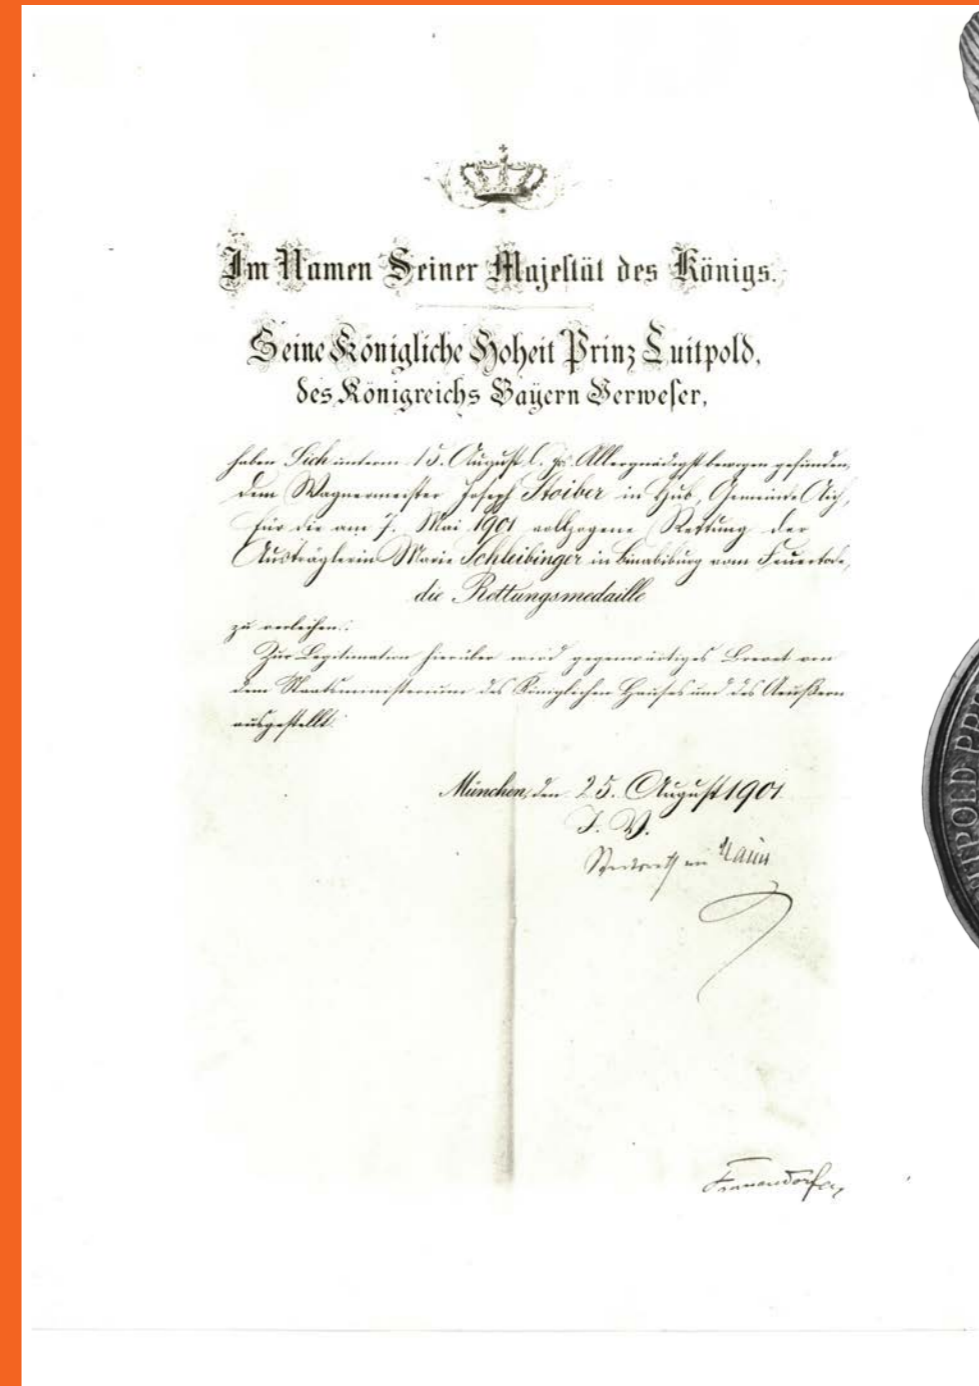 Im Namen Seiner Majestät des Königs.
Seine Königliche Hoheit Prinz Luitpold,
des Königreichs Bayern Verweser,
haben Sich unterm 15. August l. Js. Allergnädigst bewogen gefunden,
dem Wagnermeister Joseph Stoiber in Hub, Gemeinde Aich,
für die am 7. Mai 1901 vollzogene Rettung der
Austräglerin Marie Schleibinger in Binabiburg vom Feuertode,
die Rettungsmedaille
zu verleihen.
Zur Legitimation hierüber wird gegenwärtiges Brevet von
dem Staatsministerium des Königlichen Hauses und des Aeußern
ausgestellt.
München, den 25. August 1901.
I. V.
Staatsrath
Frauendorfer